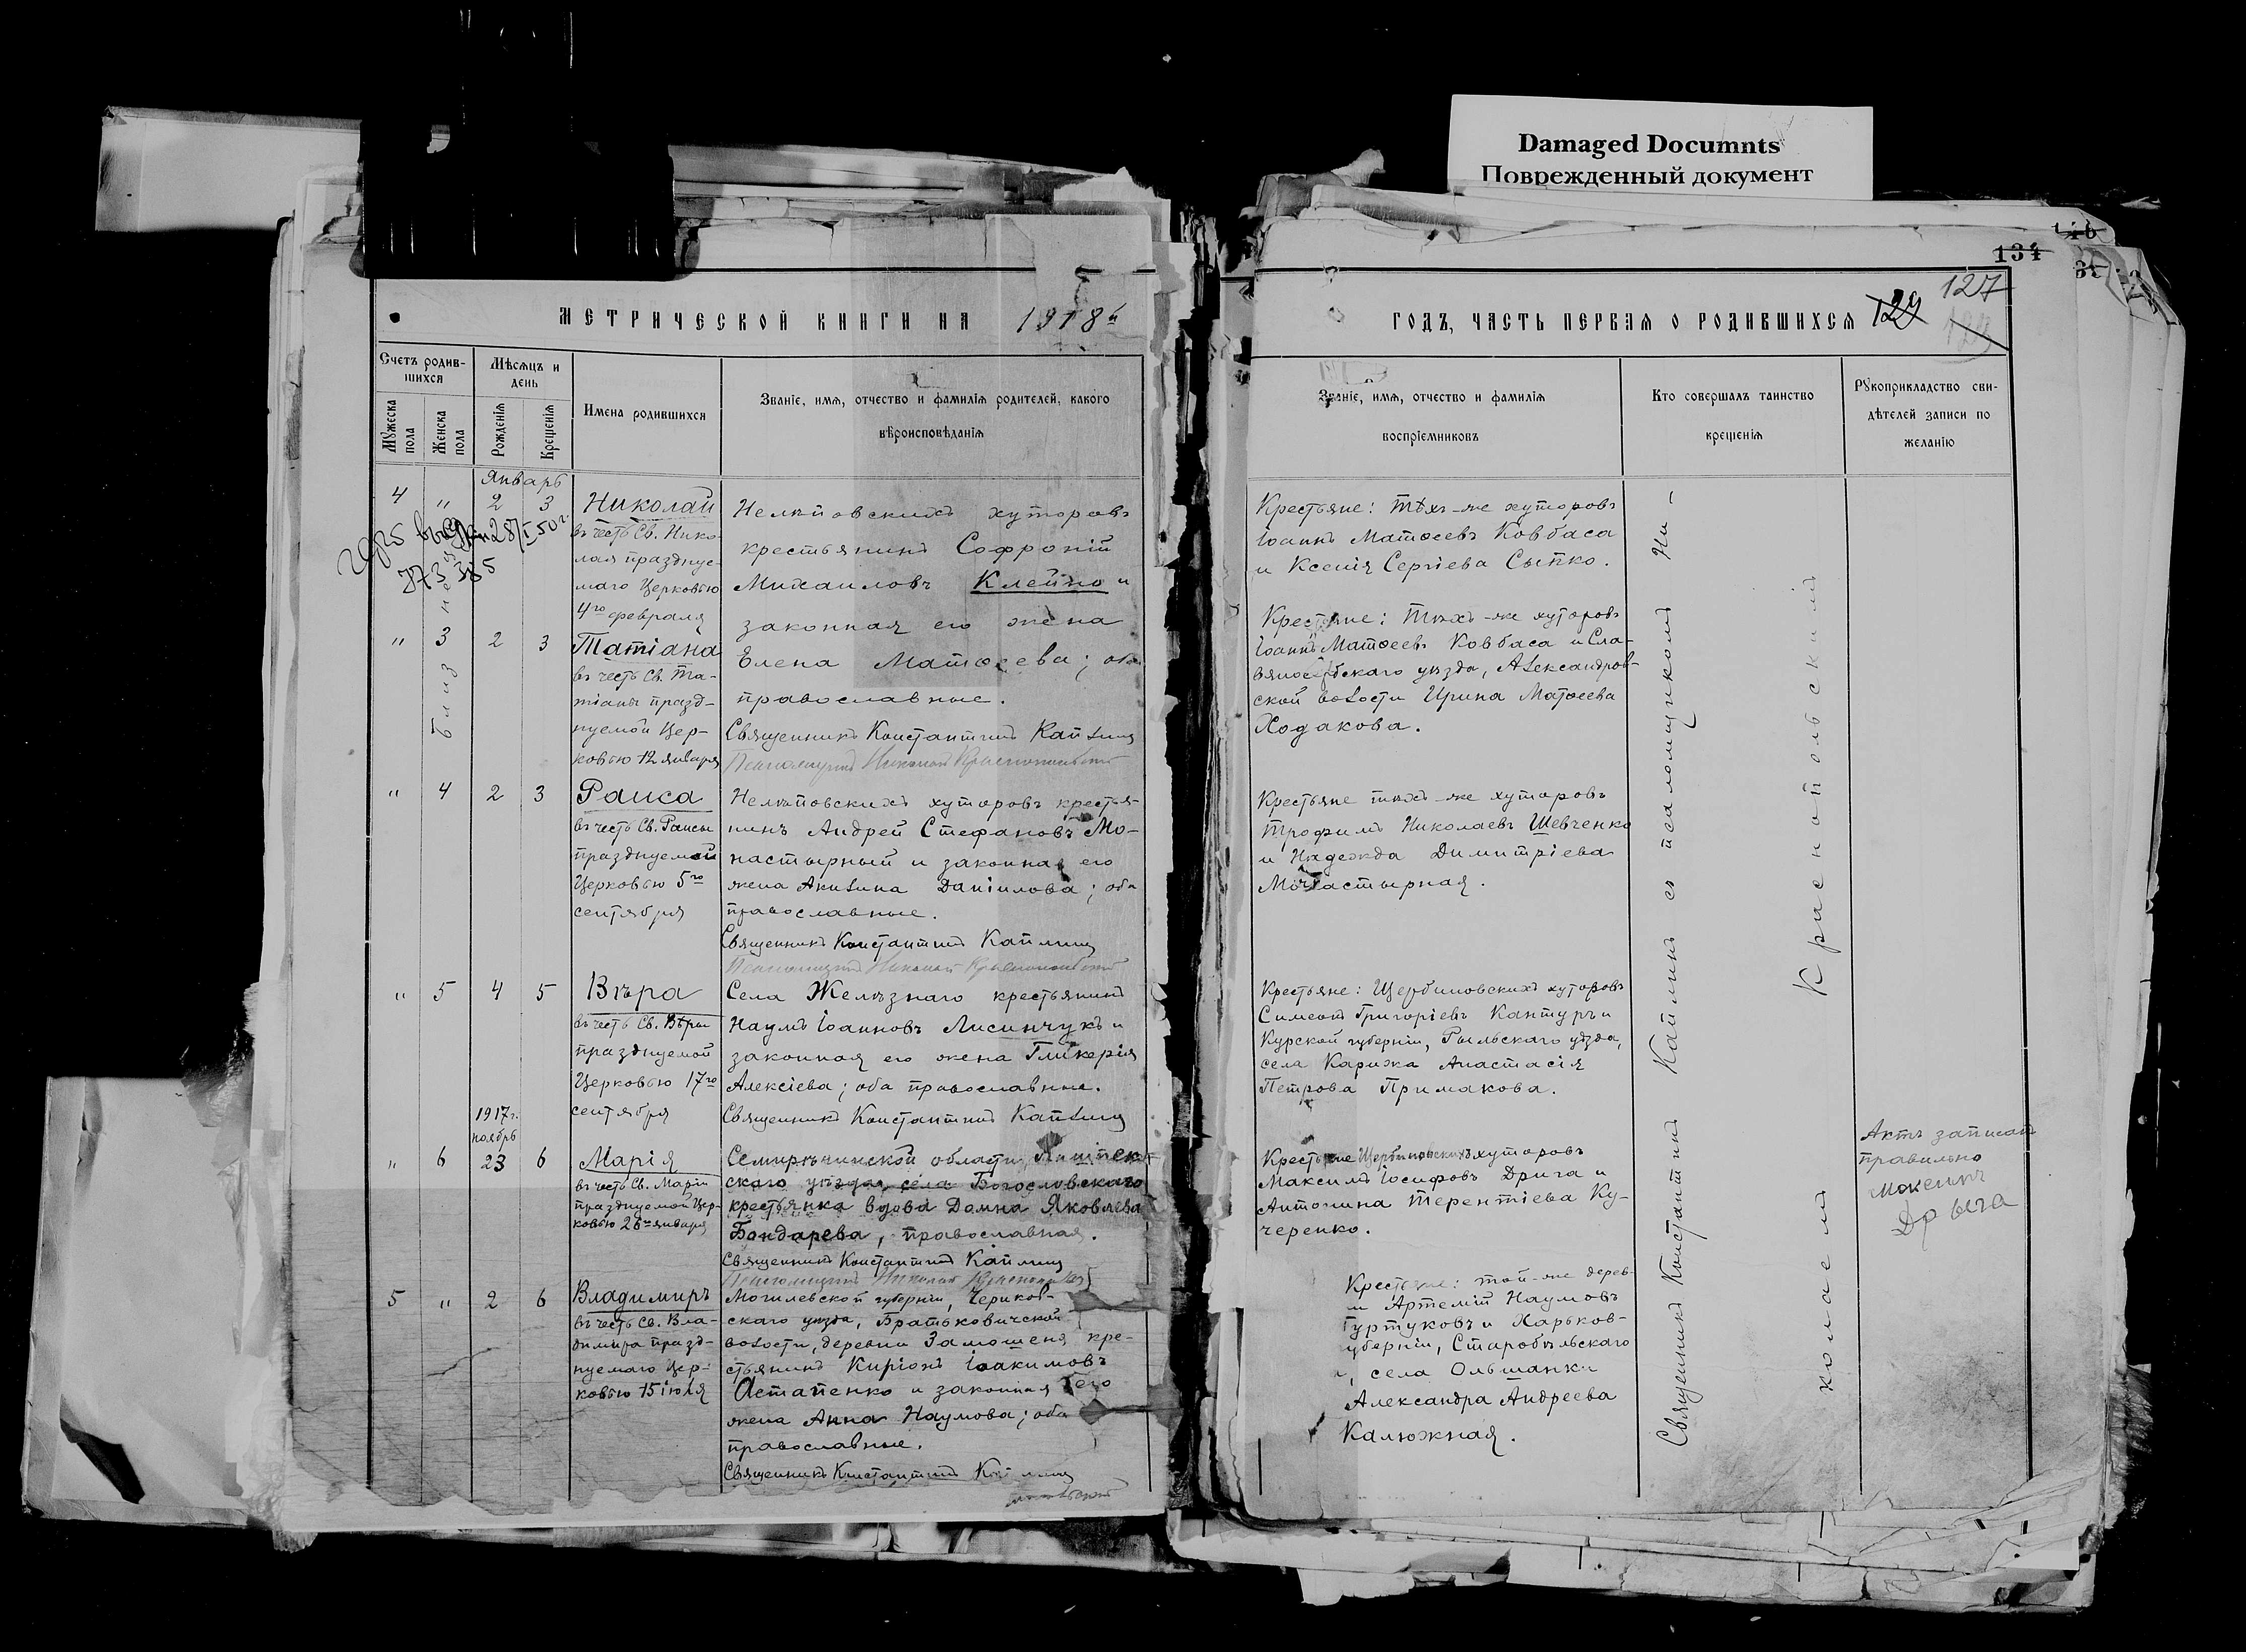 Damaged Documnts
Поврежденный документ
134
127
129
МЕТРИЧЕСКОЙ КНИГИ НА 1918й
ГОДЪ, ЧАСТЬ ПЕРВАЯ О РОДИВШИХСЯ
Счетъ родив-
шихся
Мѣсяцъ и
день
Мужеска
пола
Женска
пола
Рожденія
Крещенія
Имена родившихся
Званіе, имя, отчество и фамилія родителей, какого
вѣроисповѣданія
Званіе, имя, отчество и фамилія
воспріемниковъ
Кто совершалъ таинство
крещенія
Рукоприкладство сви-
дѣтелей записи по
желанію
Январь
4 " 2 3
Николай
въ честь Св. Нико-
лая праздние-
маго Церковью
4го февраля
" 3 2 3
Татіана
въ честь Св. Та-
тіаны празд-
нуемой Цер-
ковью 12 января
близ
Нелѣповскихъ хуторовъ
крестьянинъ Софроній
Михаиловъ Клейно и
законная его жена
Елена Матѳеева; оба
православные.
Священникъ Константинъ Каплинъ
Псаломщикъ Николай Краснопольскій
Крестьяне: Тѣхъ-же хуторовъ
Іоаннъ Матѳеевъ Ковбаса
и Ксенія Сергіева Сыпко.
Крестьяне: Тѣхъ-же хуторовъ
Іоаннъ Матѳеевъ Ковбаса и Сла-
вяносербскаго уѣзда, Александров-
ской волости Ирина Матѳеева
Ходакова.
" 4 2 3
Раиса
въ честь Св. Раисы
празднуемой
Церковью 5го
сентября
Нелѣповскихъ хуторовъ крестья-
нинъ Андрей Стефановъ Мо-
настырный и законная его
жена Акилина Даніилова; оба
православные.
Священникъ Константинъ Каплинъ
Псаломщикъ Николай Краснопольскій
Крестьяне тѣхъ-же хуторовъ
Трофимъ Николаевъ Шевченко
и Надежда Димитріева
Монастырная.
" 5 4 5
Вѣра
въ честь Св. Вѣры
празднуемой
Церковью 17го
сентября
Села Желѣзнаго крестьянинъ
Наумъ Іоанновъ Лисинчукъ и
законная его жена Гликерія
Алексіева; оба православные.
Священникъ Константинъ Каплинъ
Крестьяне: Щербиновскихъ хуторовъ
Симеонъ Григоріевъ Кантуръ и
Курской губерніи, Рыльскаго уѣзда,
села Карижа Анастасія
Петрова Примакова.
1917г.
ноябрь
" 6 23 6
Марія
въ честь Св. Маріи
празднуемой Цер-
ковью 26го января
Семирѣчинской области, Пишпек-
скаго уѣзда, села Богословскаго
крестьянка вдова Домна Яковлева
Бондарева, православная.
Священникъ Константинъ Каплинъ
Псаломщикъ Николай
Крестьяне Щербиновскихъ хуторовъ
Максимъ Іосифовъ Дрига и
Антонина Терентіева Ку-
черенко.
Актъ записанъ
правильно
Максимъ
Дрыга
5 " 2 6
Владимиръ
въ честь Св. Вла-
димира празд-
нуемаго Цер-
ковью 15 іюля
Могилевской губерніи, Чериков-
скаго уѣзда, Братьковичской
волости, деревни Замошеня кре-
стьянинъ Киріонъ Іоакимовъ
Астапенко и законная его
жена Анна Наумова; оба
православные.
Священникъ Константинъ Каплинъ
Крестьяне: той-же дерев-
и Артемій Наумовъ
Гуртуковъ и Харьков-
губерніи, Старобѣльскаго
села Ольшанки
Александра Андреева
Калюжная.
Священникъ Константинъ Каплинъ съ псаломщикомъ Ни-
колаемъ Краснопольскимъ